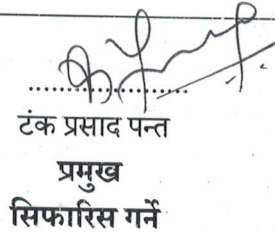 टंक प्रसाद पन्त
प्रमुख
सिफारिस गर्ने